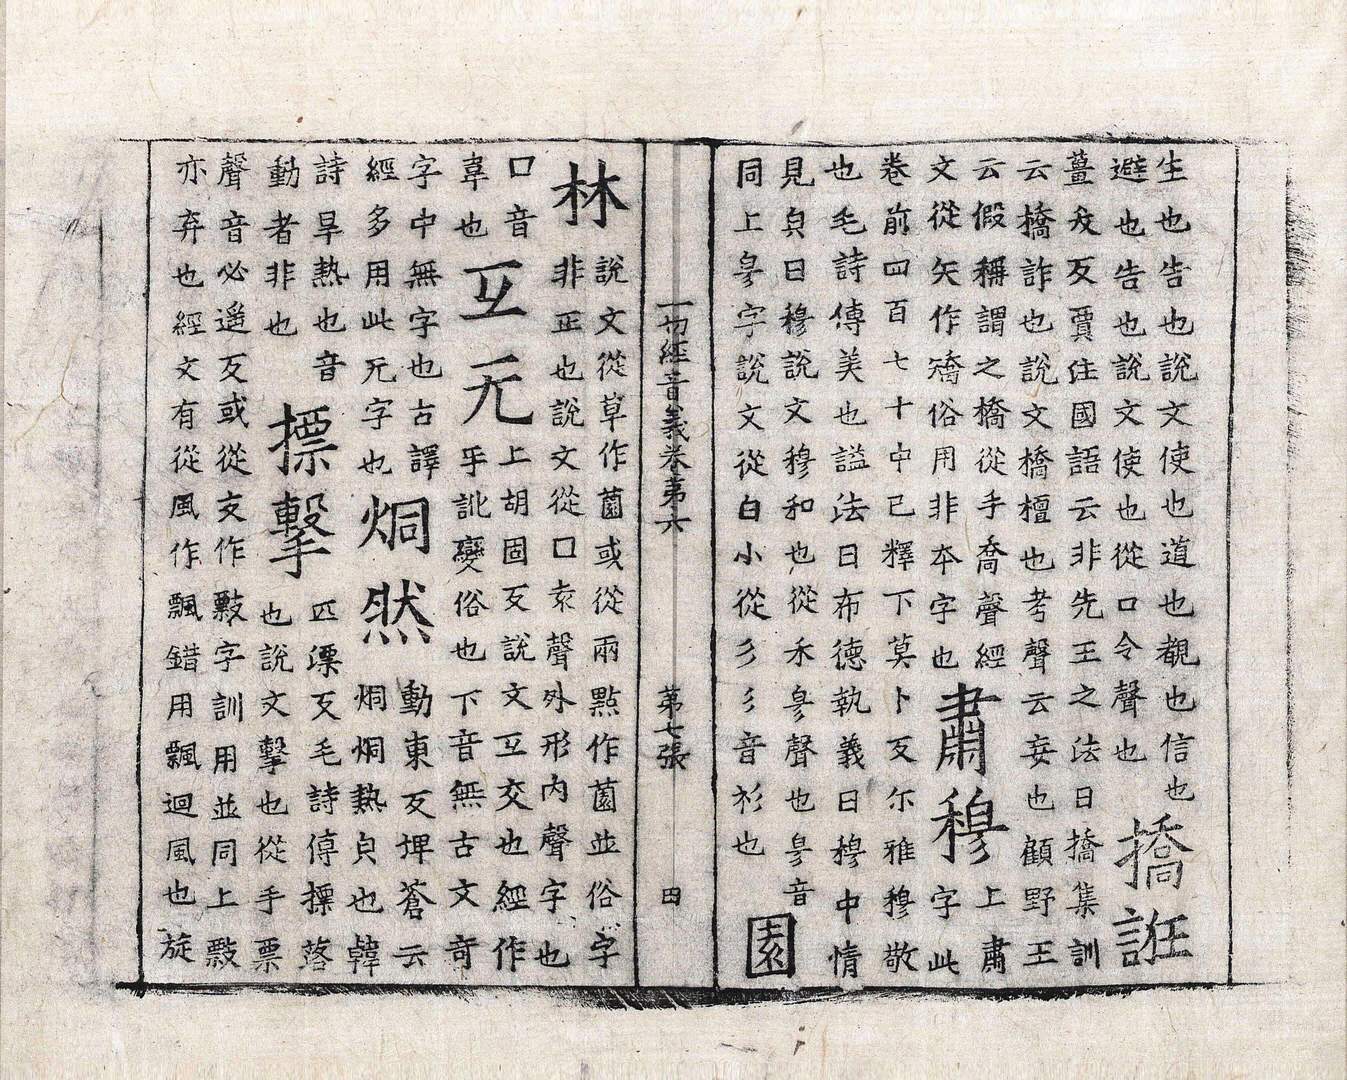 生也告也說文使也道也覩也信也
避也告也說文使也從口令聲也
撟誑
薑夭反賈注國語云非先王之法曰撟集訓
云撟詐也說文撟擅也考聲云妄也顧野王
云假稱謂之撟從手喬聲經
文從矢作矯俗用非本字也
肅穆
上肅字此
卷前四百七十中已釋下莫卜反尒雅穆敬
也毛詩傳美也謚法曰布德執義曰穆中情
見皃曰穆說文穆和也從禾㣎聲也㣎音
同上㣎字說文從白小從彡彡音衫也
園
一切經音義卷第六 第七張 田
林
說文從草作薗或從兩點作薗並俗字
非正也說文從囗袁聲外形內聲字也
囗音
韋也
互无
上胡固反說文互交也經作
乎訛變俗也下音無古文奇
字中無字也古譯
經多用此无字也
烔然
動東反埤蒼云
烔烔熱皃也韓
詩旱熱也音
動者非也
摽擊
匹漂反毛詩傳摽落
也說文擊也從手票
聲音必遙反或從攴作㪏字訓用並同上㪏
亦弃也經文有從風作飄錯用飄迴風也旋